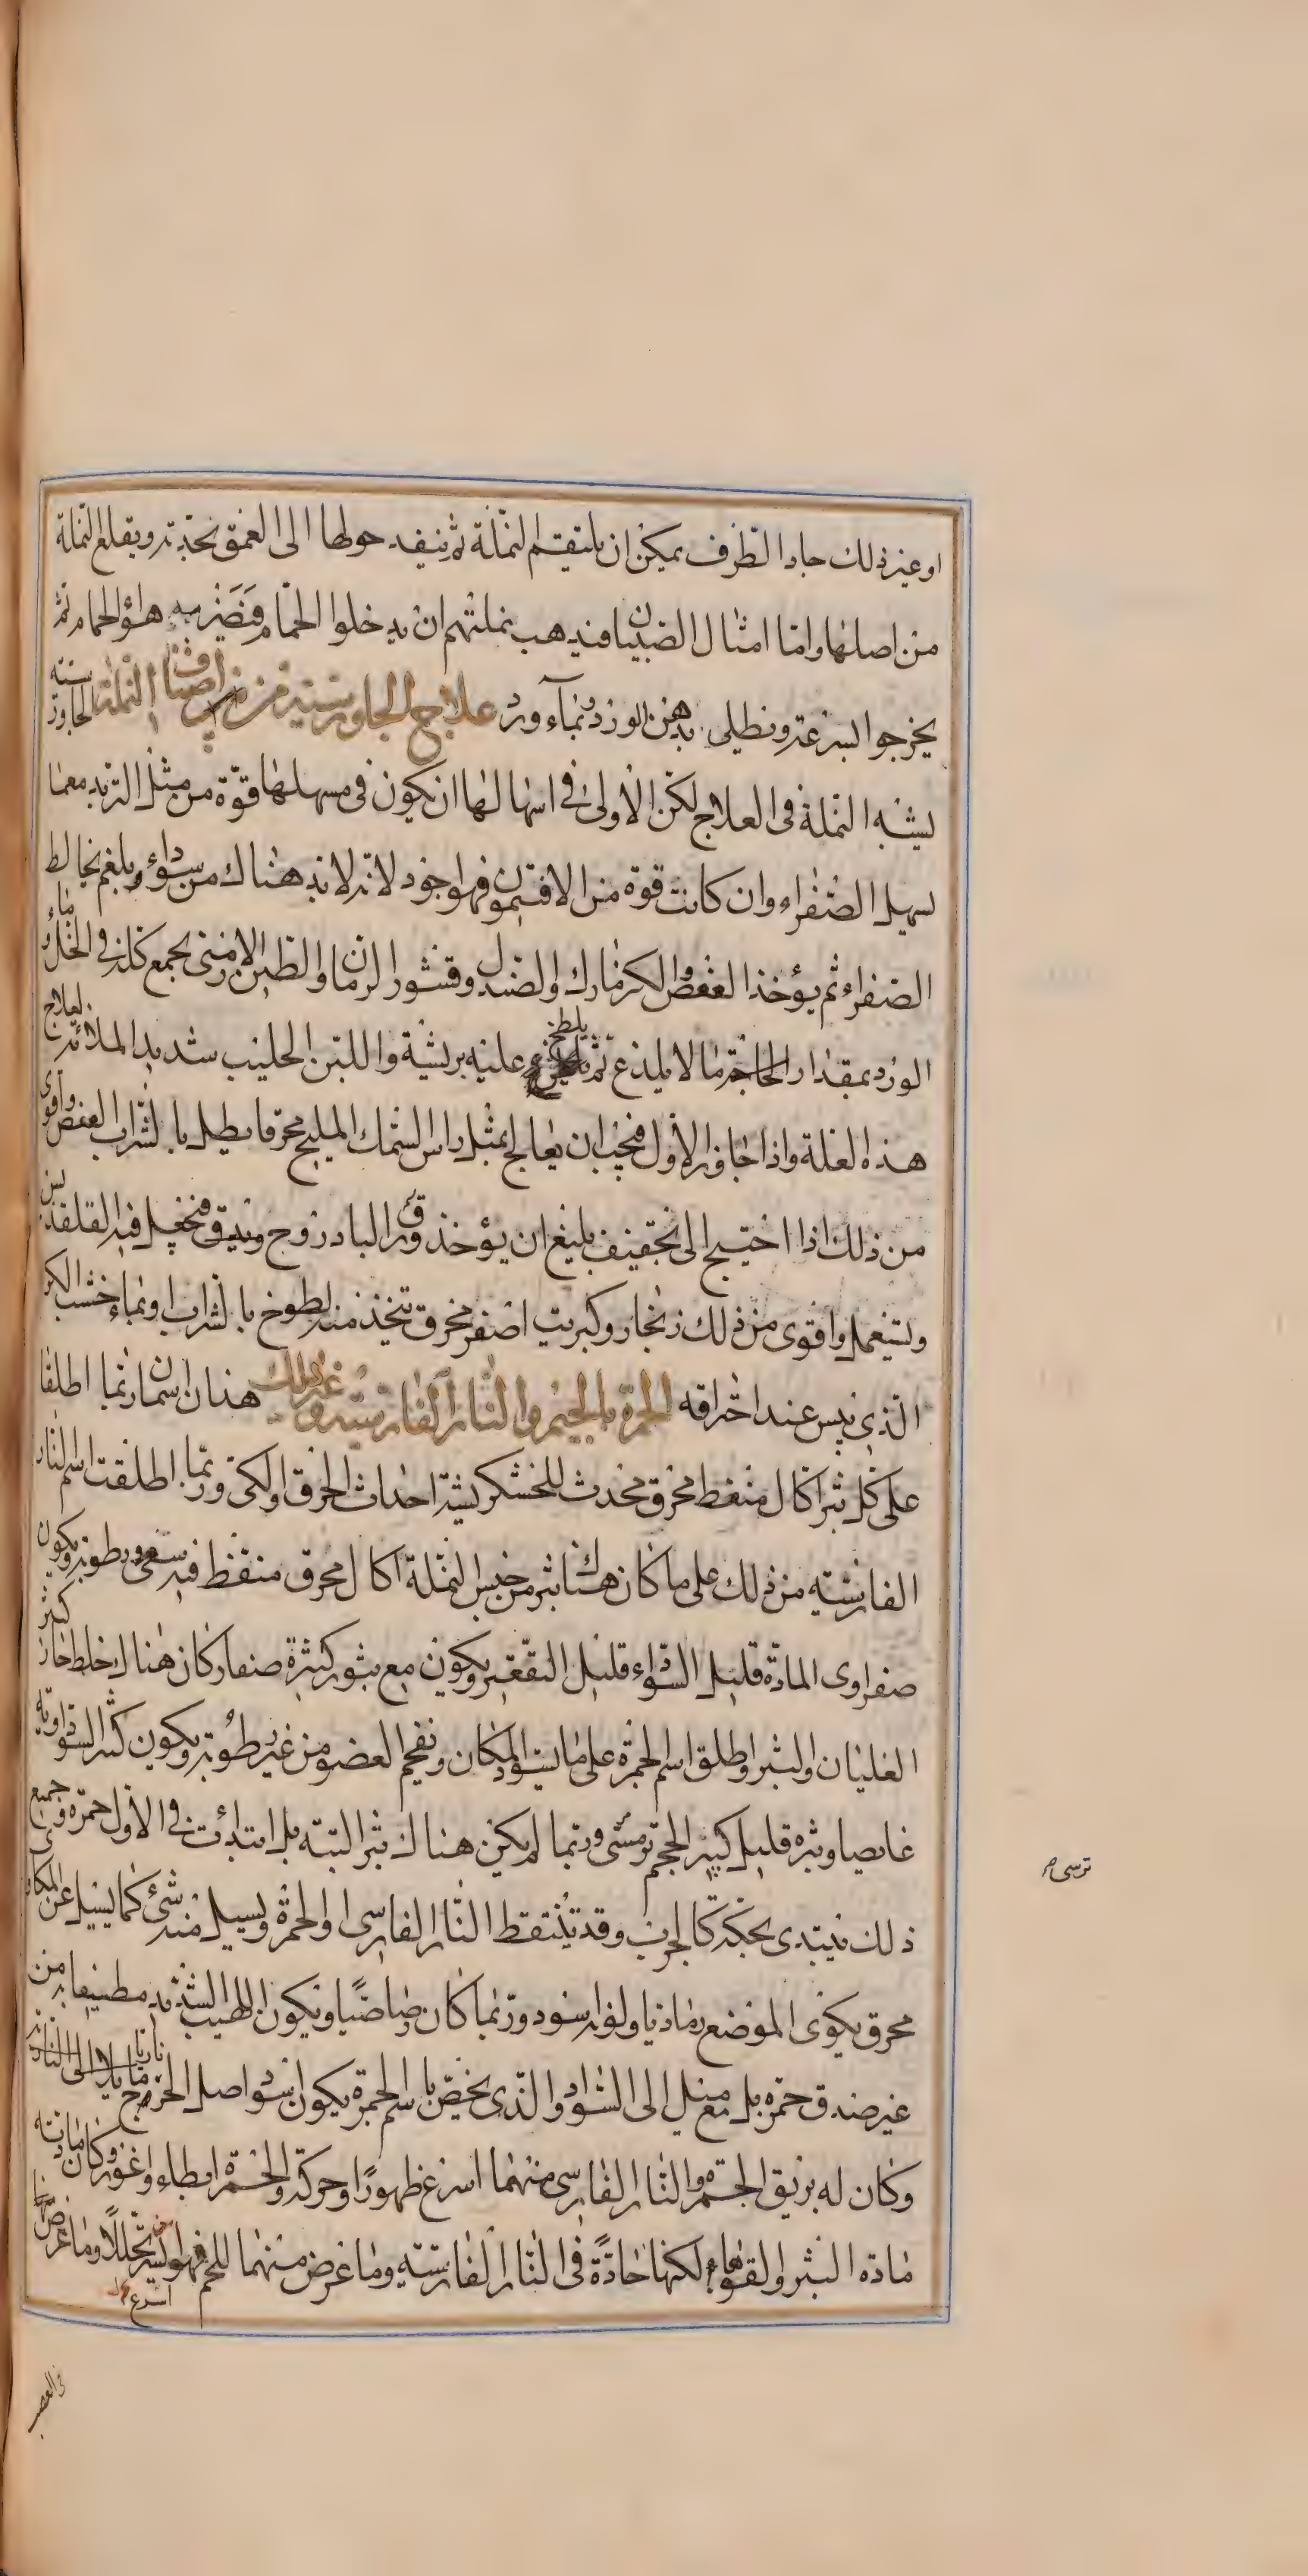 او غير ذلك حاد الطرف يمكن ان يلتقم النملة ثم ينفد حولها الى العمق بحدته ويقلع النملة
من اصلها واما امثال الصبيان فيذهب نملتهم ان يدخلوا الحمام فتضربه هواء الحمام ثم
يخرجوا بسرعة ونطلى بدهن الورد وبماء ورد علاج الجاورسية من اصناف النملة الجاورسية
يشبه النملة فى العلاج لكن الاولى فى اسهالها ان يكون فى مسهلها قوة من مثل التربد مع ما
يسهل الصفراء وان كانت قوة من الافتيمون فهو اجود لانه لابد هناك من سوداء وبلغم يخالط
الصفراء ثم يؤخذ العفص والكزمازك والصندل وقشور الرمان والطين الارمنى يجمع كله فى الخل وماء
الورد بمقدار الحاجة ما لا يلذع ثم يلطخ عليه بريشة واللبن الحليب شديد الملائمة لعلاج
هذه العلة واذا جاوز الاول فيجب ان يعالج بمثل راس السمك المليح محرقا يطلى بالشراب العفص واقوى
من ذلك اذا احتيج الى تجفيف بليغ ان يؤخذ ورق البادروج ويدق فيجعل فيه القلقديس
ويستعمل واقوى من ذلك زنجار وكبريت اصفر محرق تتخذ منه لطوخ بالشراب او بماء خشب الكرم
الذى يبس عند احتراقه الجمرة بالجيم والنار الفارسية وغير ذلك هذان اسمان ربما اطلقا
على كل بثر اكال منفط محرق محدث للخشكريشة احداث الحرق او الكى وربما اطلقت اسم النار
الفارسية من ذلك على ما كان هناك بثر من جنس النملة اكال محرق منفط فيه سعى ورطوبة ويكون
صفراوى المادة قليل السوداء قليل التقعير ويكون مع بثور كثيرة صغار كان هناك خلط حار كثير
الغليان والبثر واطلق اسم الجمرة على ما يسود المكان ونفحم العضو من غير رطوبة ويكون كثير السوداوية
غايصا وبثره قليل كبير الحجم ترمسى وربما لم يكن هناك بثر البتة بل ابتدأت فى الاول حمرة وجميع
ذلك يبتدى بحكة كالجرب وقد يتنقط النار الفارسى او الجمرة ويسيل منه شئ كما يسيل عن المكاوى
محرق يكوى الموضع رمادى اولونه اسود وربما كان رصاصيا ويكون اللهيب الشديد مطيفا به من
غير صدق حمرة بل مع ميل الى السواد والذى يخص باسم الجمرة يكون اسود اصل الجرح مايلا الى النارية
وكان له بريق الجمر والنار الفارسى منهما اسرع ظهورا وحركة والجمرة ابطاء واغور وكان مادته
مادة البثر والقوباء لكنها حادة فى النار الفارسية وما عرض منهما للحم فهو اسرع تحللا وما عرض منها
ترسى
فى العصب